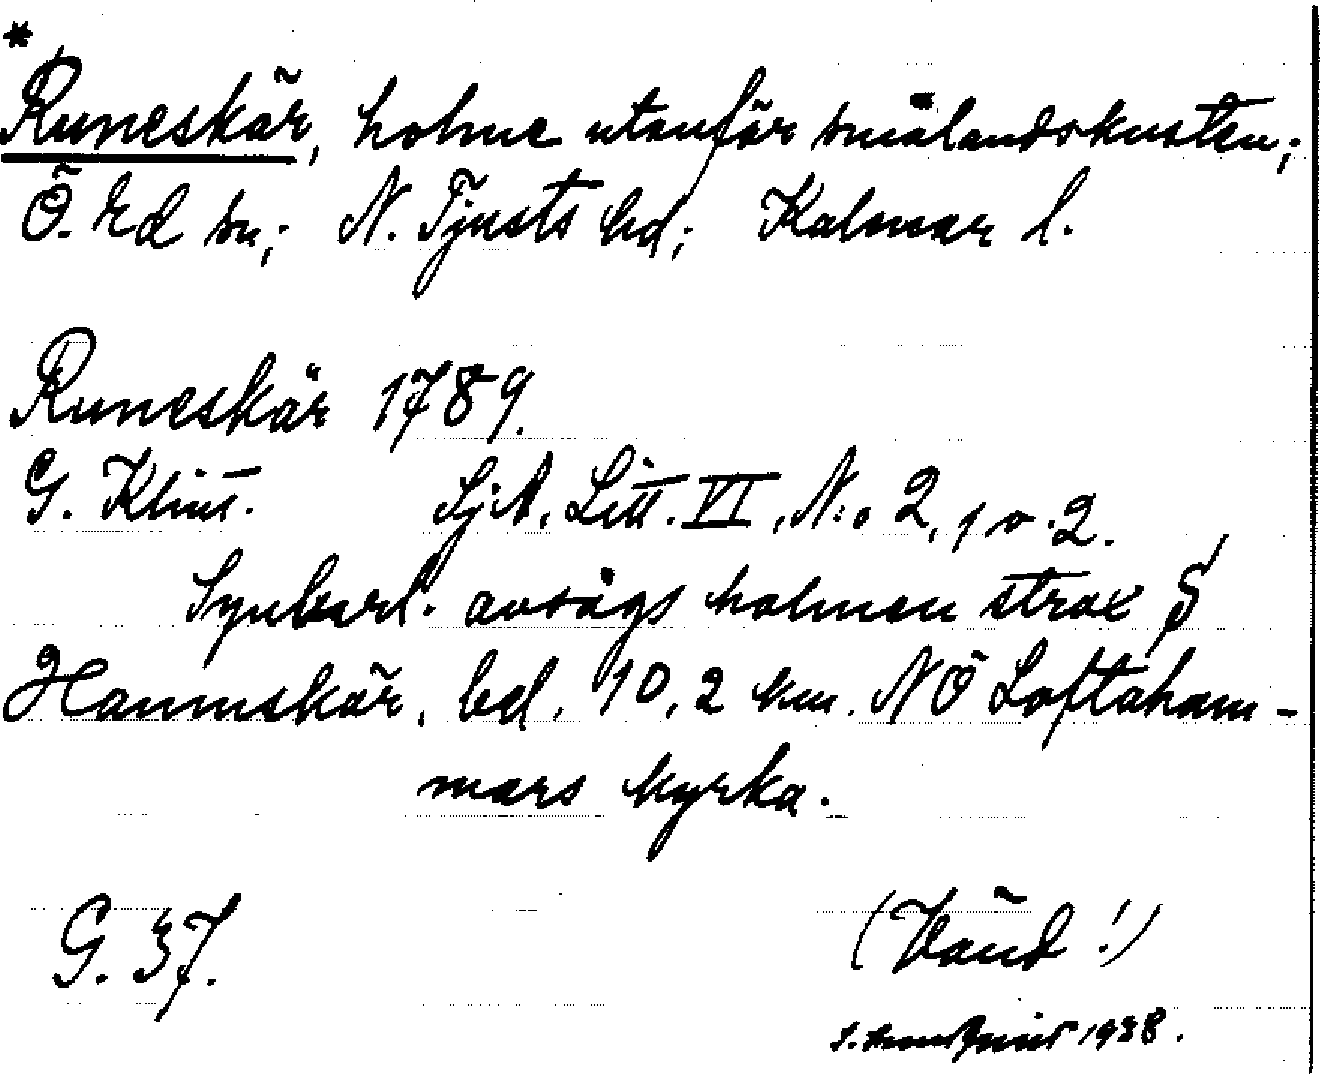 *
Runeskär, holme utanför smålandskusten;
Ö. Ed sn; N. Tjusts hd; Kalmar l.
Runeskär 1789.
G. Klint. Sj.A. Litt. VI, N:o 2, 1 o. 2.
Synbarl. avsågs holmen strax S
Hamnskär, bel. 10,2 km. NÖ Loftaham-
mars kyrka.
G. 37. (Vänd!)
1938.